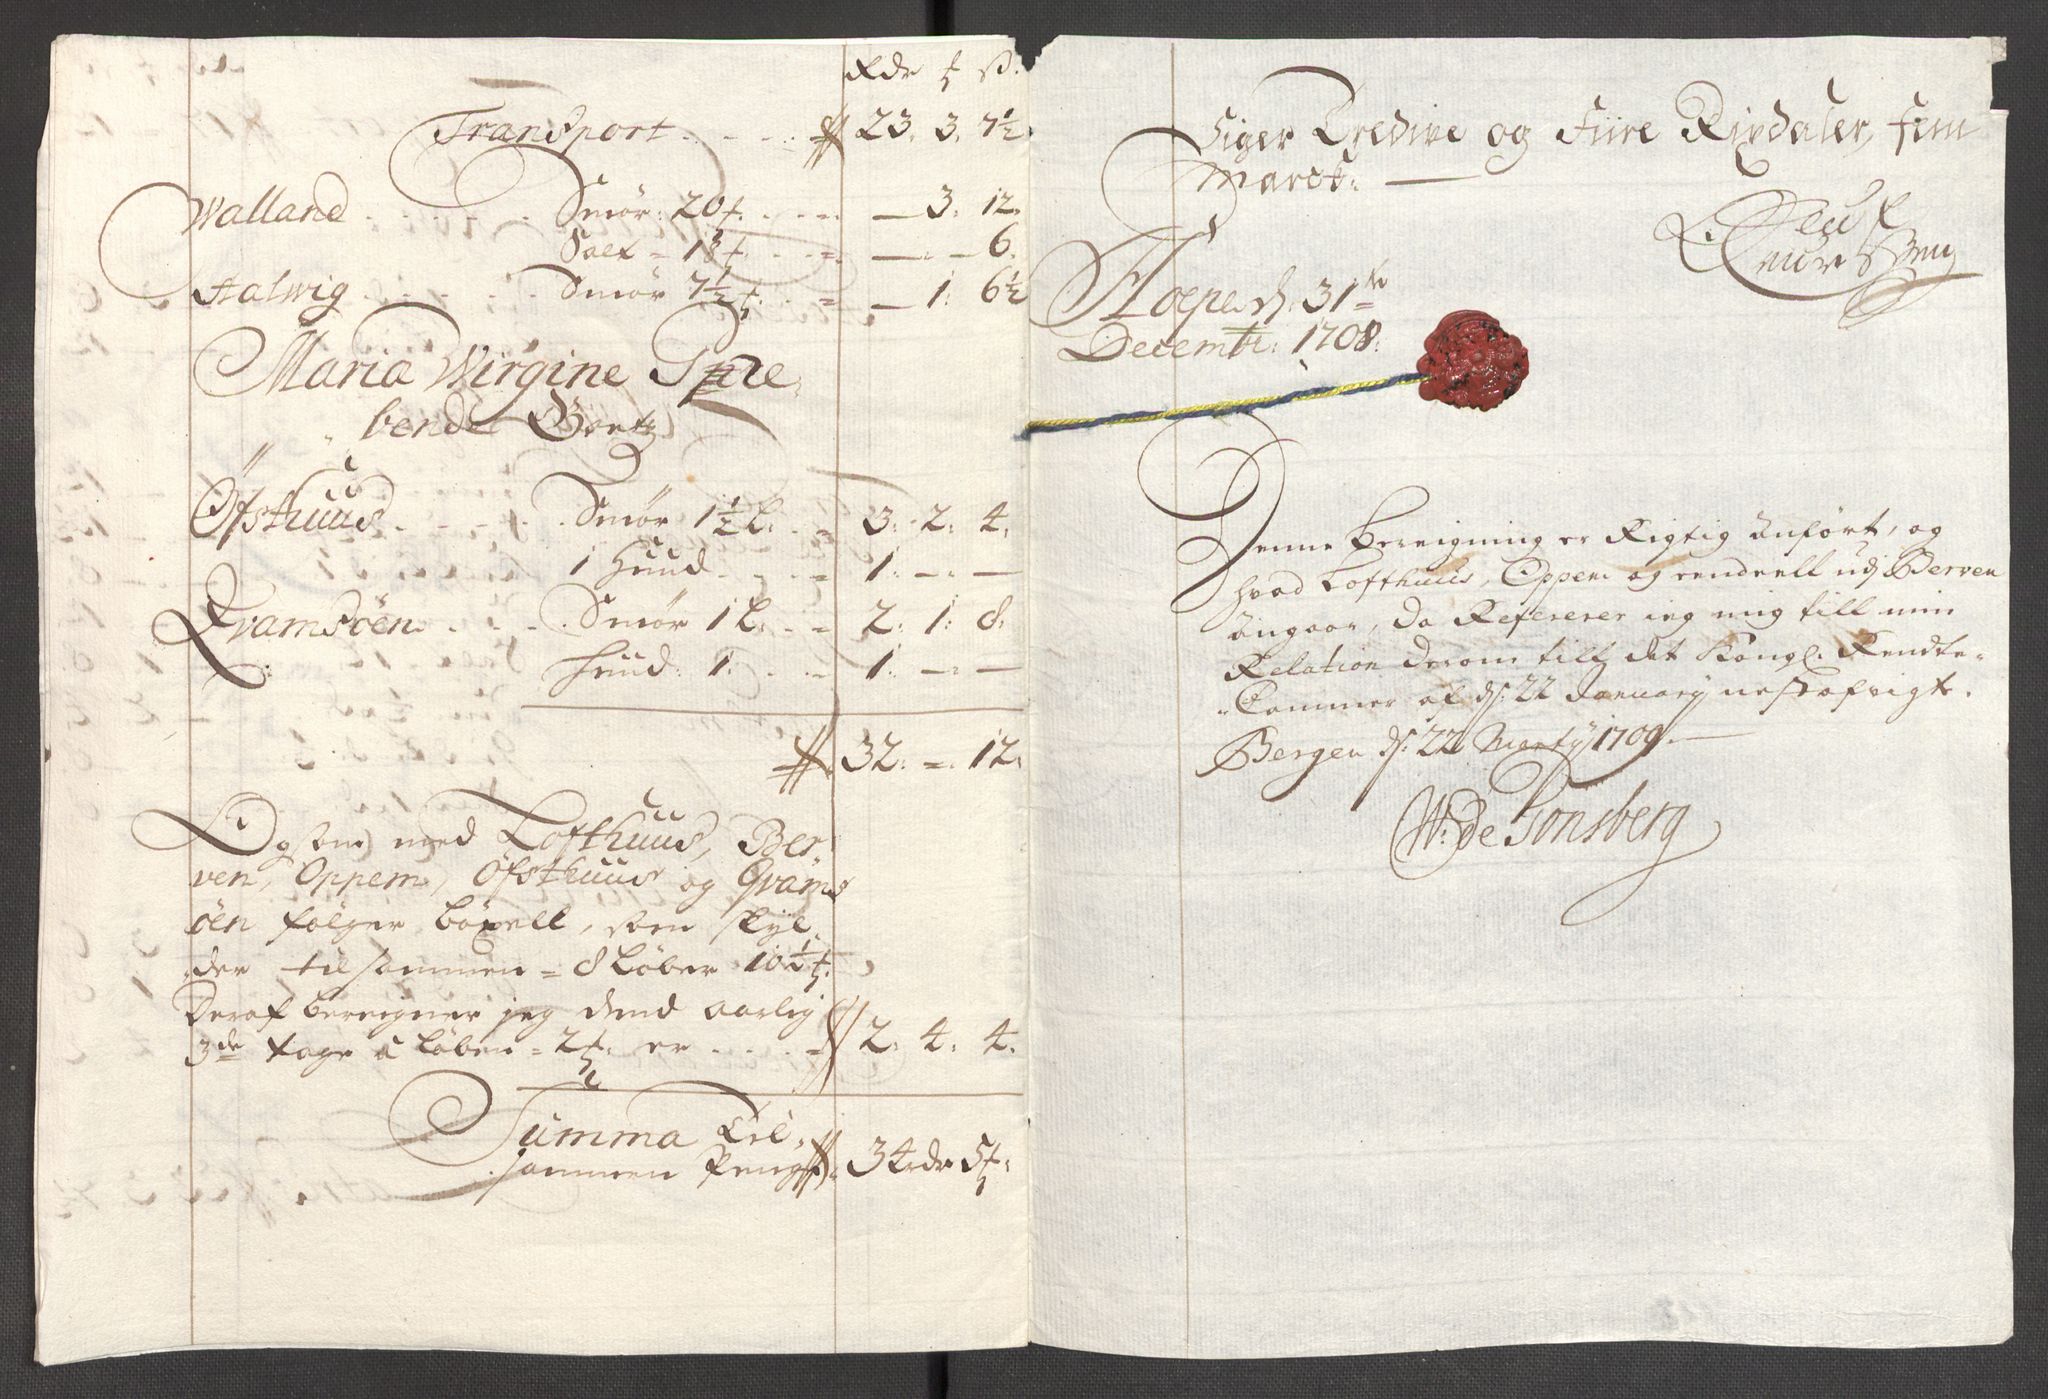 Rdr ß.
Transport 23. 3. 7½
Walland Smör: 20 — 3. 12.
Salt 1 — — 6.
Halwig Smör 7½ — 1. 6½
Maria Wirgine Præ-
bende Goetz
Öfsthuus Smör 1½ L. 3. 2. 4.
1 Huud 1. — —
Qvamsöen Smör 1 L: 2: 1. 8.
Huud: 1: 1. — —
32. — 12.
Ogsom med Lofthuus, Ber-
ven, Oppem, Öfsthuus og Qvams
öen følger böxell, som skyl-
der tilsammen 8 Løber 10½
Deraf beregner jeg dend aarlig
3de tage a Løben 2 er 2. 4. 4.
Summa Til-
sammen Penge 34 rdr 5
Siger Tredive og Fiire Rixdaler, fem
Marck: —
Hope d. 31te
Decembr: 1708.
Denne Bereigning er Rigtig Anfört, og
hvad Lofthuus, Oppem og endeell udj Berven
Angaar, da Refererer ieg mig till min
Relation derom till det Kongl. Rendte-
Cammer af ds: 22 January nestafvigte.
Bergen ds: 22 Marty 1709. —
W: de Tonsberg